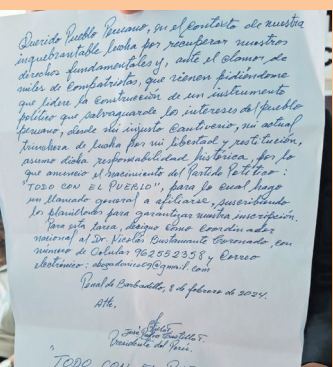 Querido Pueblo Peruano, en el contexto de nuestra
inquebrantable lucha por recuperar nuestros
derechos fundamentales y, ante el clamor de
miles de compatriotas, que vienen pidiéndome
que lidere la construcción de un instrumento
político que salvaguarde los intereses del pueblo
peruano, desde mi injusto cautiverio, mi actual
trinchera de lucha por mi libertad y restitución,
asumo dicha responsabilidad histórica, por lo
que anuncio el nacimiento del Partido Político:
"TODO CON EL PUEBLO", para lo cual hago
un llamado general a afiliarse, suscribiendo
los planillones para garantizar nuestra inscripción.
Para esta tarea, designo como coordinador
nacional al Dr. Nicolás Bustamante Coronado, con
número de Celular 962552358 y Correo
electrónico: @gmail.com
Penal de Barbadillo, 8 de febrero de 2024.
Atte.
José Pedro Castillo T.
Presidente del Perú.
TODO CON EL